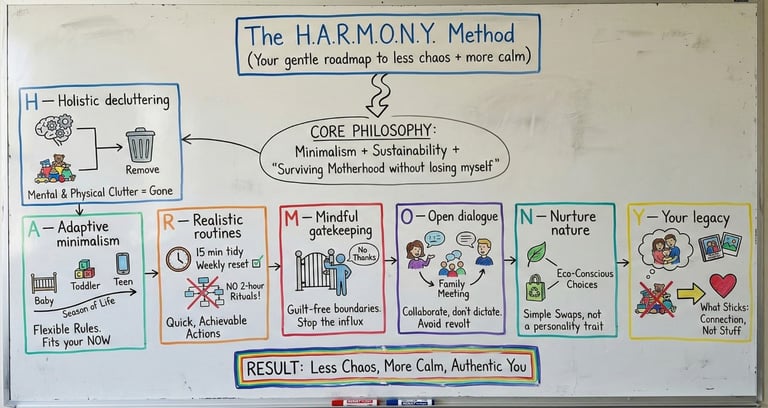 The H.A.R.M.O.N.Y. Method
(Your gentle roadmap to less chaos + more calm)
CORE PHILOSOPHY:
Minimalism + Sustainability +
"Surviving Motherhood without losing myself"
H – Holistic decluttering
Remove
Mental & Physical Clutter = Gone
A – Adaptive
minimalism
Baby
Toddler
Teen
Season of Life
Flexible Rules.
Fits your NOW
R – Realistic
routines
15 min tidy
Weekly reset
NO 2-hour
Rituals!
Quick, Achievable
Actions
M – Mindful
gatekeeping
No
Thanks
Guilt-free boundaries.
Stop the influx
O – Open dialogue
Family
Meeting
Collaborate, don't dictate.
Avoid revolt
N – Nurture
nature
Eco-Conscious
Choices
Simple Swaps, not
a personality trait
Y – Your legacy
What Sticks:
Connection,
Not Stuff
RESULT: Less Chaos, More Calm, Authentic You